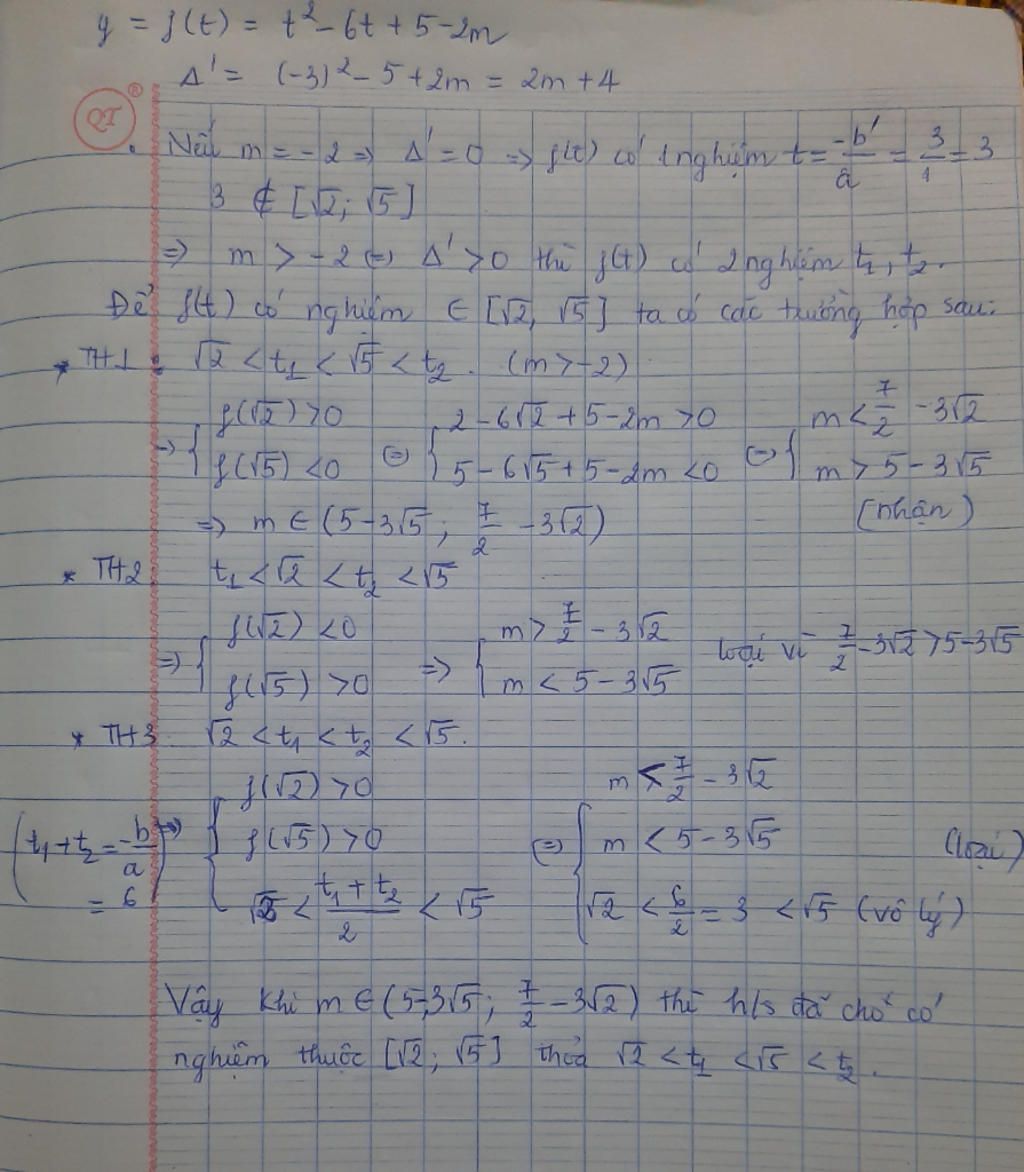 y = f(t) = t² - 6t + 5 - 2m
Δ' = (-3)² - 5 + 2m = 2m + 4
QT ®
. Nếu m = -2 => Δ' = 0 => f(t) có 1 nghiệm t = -b'/a = 3/1 = 3
3 ∉ [√2; √5]
=> m > -2 <=> Δ' > 0 thì f(t) có 2 nghiệm t₁, t₂.
Để f(t) có nghiệm ∈ [√2, √5] ta có các trường hợp sau:
* TH1: √2 < t₁ < √5 < t₂. (m > -2)
=> { f(√2) > 0 ; f(√5) < 0 <=> { 2 - 6√2 + 5 - 2m > 0 ; 5 - 6√5 + 5 - 2m < 0 <=> { m < 7/2 - 3√2 ; m > 5 - 3√5
(nhận)
=> m ∈ (5 - 3√5 ; 7/2 - 3√2)
* TH2 t₁ < √2 < t₂ < √5
=> { f(√2) < 0 ; f(√5) > 0 => { m > 7/2 - 3√2 ; m < 5 - 3√5 loại vì 7/2 - 3√2 > 5 - 3√5
* TH3 √2 < t₁ < t₂ < √5.
(t₁ + t₂ = -b/a = 6) => { f(√2) > 0 ; f(√5) > 0 ; √2 < (t₁ + t₂)/2 < √5 <=> { m < 7/2 - 3√2 ; m < 5 - 3√5 ; √2 < 6/2 = 3 < √5 (vô lý) (loại)
Vậy khi m ∈ (5-3√5 ; 7/2 - 3√2) thì h/s đã cho có
nghiệm thuộc [√2; √5] thoả √2 < t₁ < √5 < t₂.